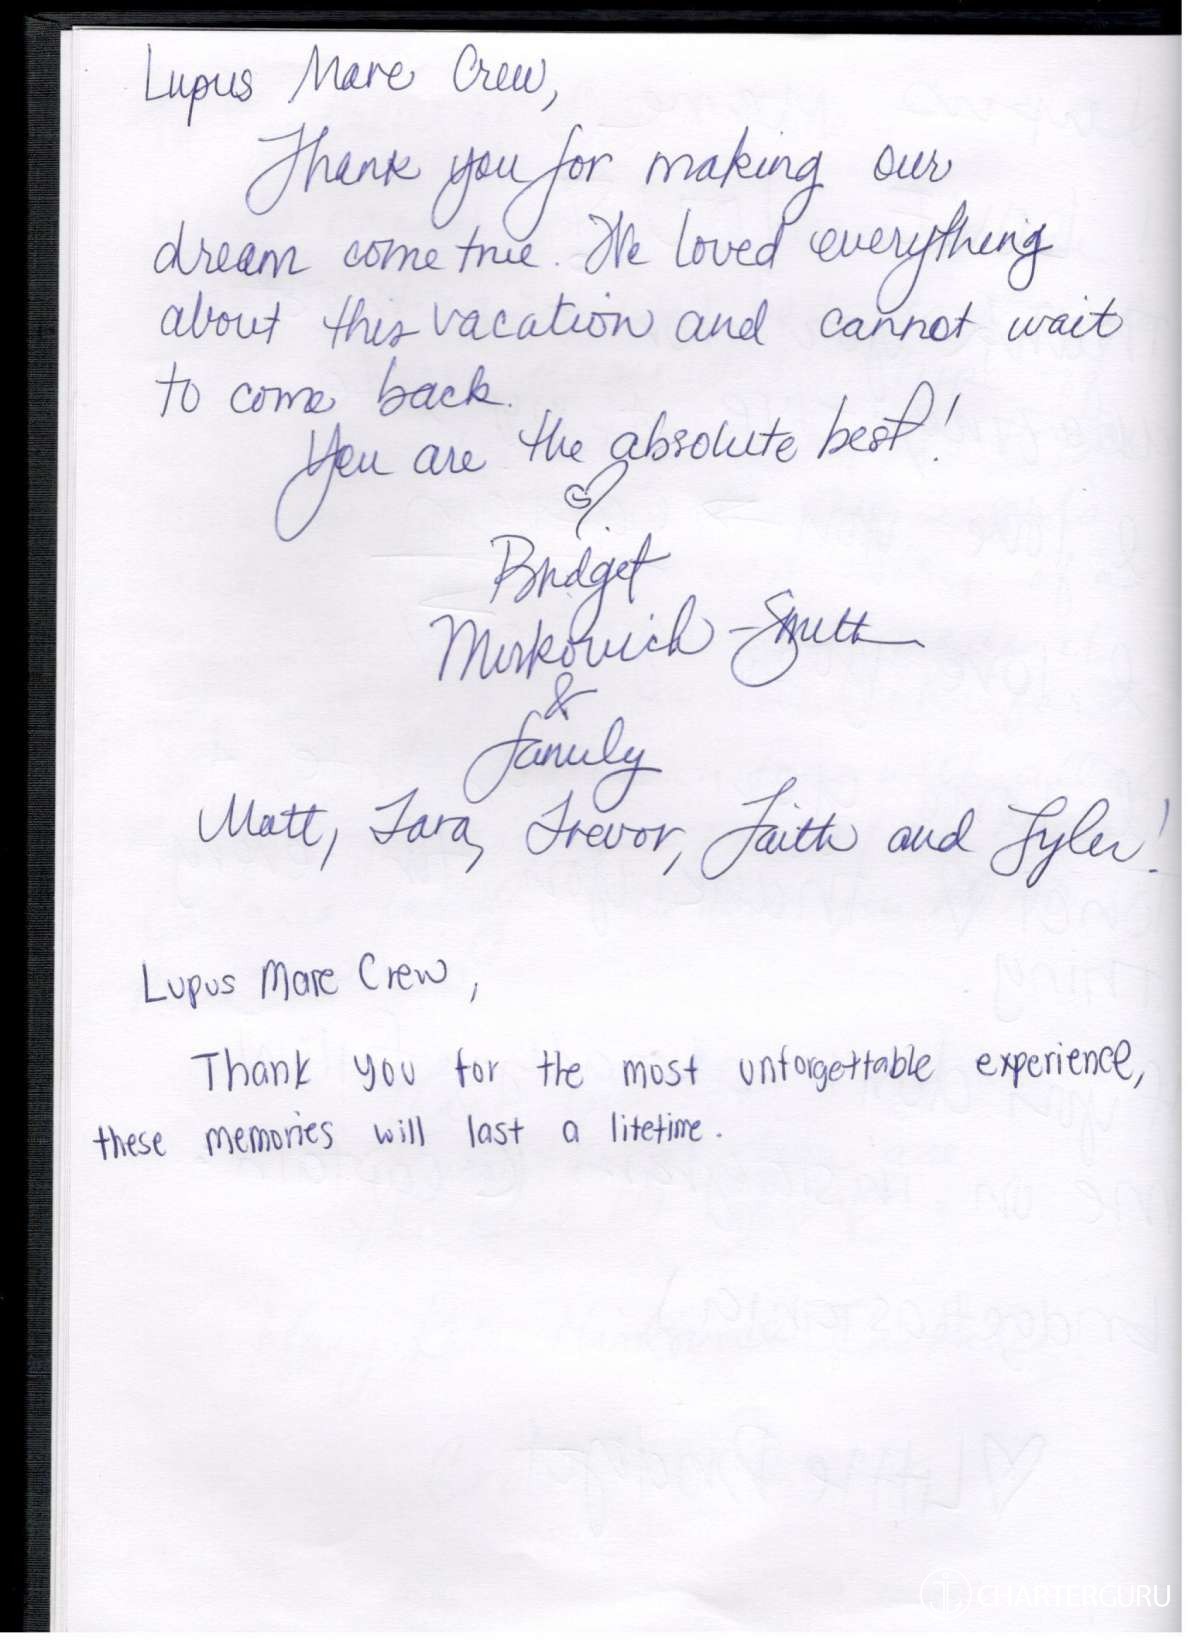 Lupus Mare Crew,
Thank you for making our
dream come true. We loved everything
about this vacation and cannot wait
to come back.
You are the absolute best!
Bridget
Mirkovich-Smith
&
family
Matt, Tara, Trevor, Faith and Tyler!
Lupus Mare Crew,
Thank you for the most unforgettable experience,
these memories will last a lifetime.
CHARTERGURU